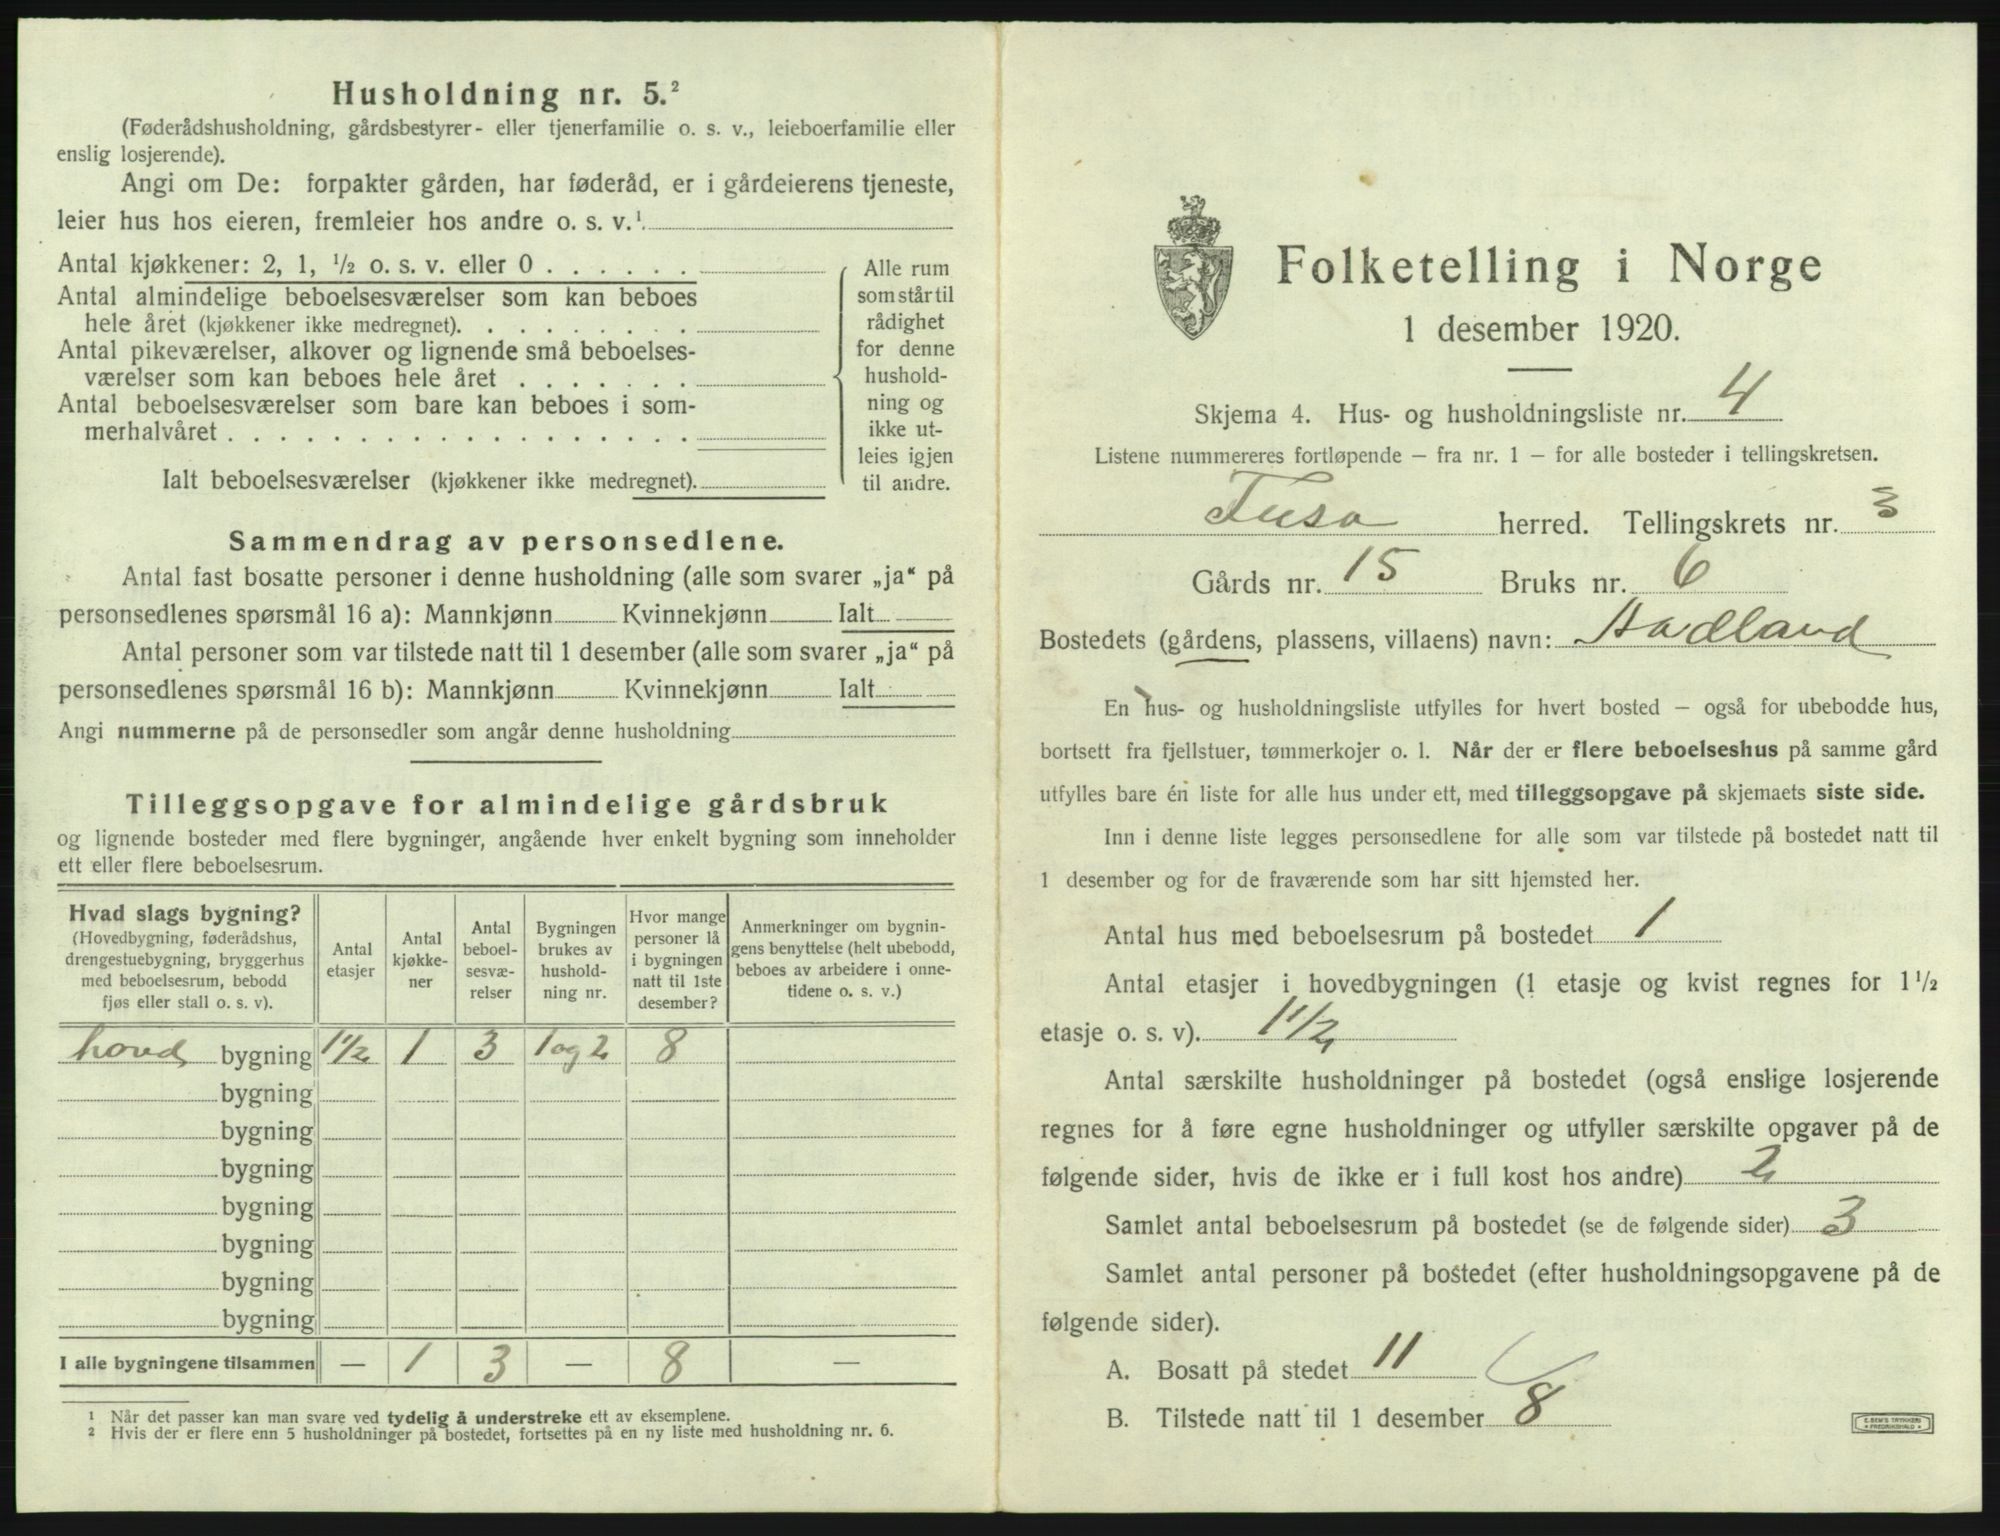 Husholdning nr. 5.²
(Føderådshusholdning, gårdsbestyrer- eller tjenerfamilie o. s. v., leieboerfamilie eller
enslig losjerende).
Angi om De: forpakter gården, har føderåd, er i gårdeierens tjeneste,
leier hus hos eieren, fremleier hos andre o. s. v.¹
Antal kjøkkener: 2, 1, ½ o. s. v. eller 0 . . . . . .
Antal almindelige beboelsesværelser som kan beboes
hele året (kjøkkener ikke medregnet). . . . . . . . .
Antal pikeværelser, alkover og lignende små beboelses-
værelser som kan beboes hele året . . . . . . .
Antal beboelsesværelser som bare kan beboes i som-
merhalvåret . . . . . . . . . . . . . . . . . .
Ialt beboelsesværelser (kjøkkener ikke medregnet).
Alle rum
som står til
rådighet
for denne
hushold-
ning og
ikke ut-
leies igjen
til andre.
Sammendrag av personsedlene.
Antal fast bosatte personer i denne husholdning (alle som svarer „ja“ på
personsedlenes spørsmål 16 a): Mannkjønn Kvinnekjønn Ialt
Antal personer som var tilstede natt til 1 desember (alle som svarer „ja“ på
personsedlenes spørsmål 16 b): Mannkjønn Kvinnekjønn Ialt
Angi nummerne på de personsedler som angår denne husholdning
Tilleggsopgave for almindelige gårdsbruk
og lignende bosteder med flere bygninger, angående hver enkelt bygning som inneholder
ett eller flere beboelsesrum.
Hvad slags bygning?
(Hovedbygning, føderådshus,
drengestuebygning, bryggerhus
med beboelsesrum, bebodd
fjøs eller stall o. s. v).
Antal
etasjer
Antal
kjøkke-
ner
Antal
beboel-
sesvæ-
relser
Bygningen
brukes av
hushold-
ning nr.
Hvor mange
personer lå
i bygningen
natt til 1ste
desember?
Anmerkninger om bygnin-
gens benyttelse (helt ubebodd,
beboes av arbeidere i onne-
tidene o. s. v.)
hoved bygning 1½ 1 3 1 og 2 8
bygning
bygning
bygning
bygning
bygning
bygning
bygning
I alle bygningene tilsammen — 1 3 — 8 —
¹ Når det passer kan man svare ved tydelig å understreke ett av eksemplene.
² Hvis der er flere enn 5 husholdninger på bostedet, fortsettes på en ny liste med husholdning nr. 6.
Folketelling i Norge
1 desember 1920.
Skjema 4. Hus- og husholdningsliste nr. 4
Listene nummereres fortløpende — fra nr. 1 — for alle bosteder i tellingskretsen.
Fusa herred. Tellingskrets nr. 3
Gårds nr. 15 Bruks nr. 6
Bostedets (gårdens, plassens, villaens) navn: Hadland
En hus- og husholdningsliste utfylles for hvert bosted — også for ubebodde hus,
bortsett fra fjellstuer, tømmerkojer o. l. Når der er flere beboelseshus på samme gård
utfylles bare én liste for alle hus under ett, med tilleggsopgave på skjemaets siste side.
Inn i denne liste legges personsedlene for alle som var tilstede på bostedet natt til
1 desember og for de fraværende som har sitt hjemsted her.
Antal hus med beboelsesrum på bostedet 1
Antal etasjer i hovedbygningen (1 etasje og kvist regnes for 1½
etasje o. s. v). 1½
Antal særskilte husholdninger på bostedet (også enslige losjerende
regnes for å føre egne husholdninger og utfyller særskilte opgaver på de
følgende sider, hvis de ikke er i full kost hos andre) 2
Samlet antal beboelsesrum på bostedet (se de følgende sider) 3
Samlet antal personer på bostedet (efter husholdningsopgavene på de
følgende sider).
A. Bosatt på stedet 11
B. Tilstede natt til 1 desember 8
E. SEM'S TRYKKERI
FREDRIKSHALD